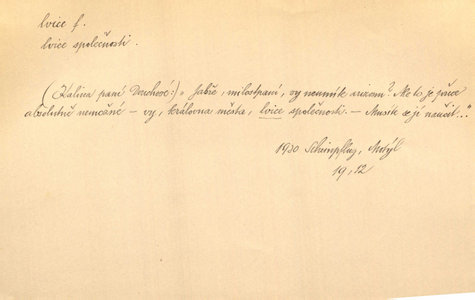 lvice f.
lvice společnosti.
(Kalina paní Druhové:) „Jakže, milostpaní, vy neumíte arukom? Ale to je přece
absolutně nemožné – vy, královna města, lvice společnosti. – Musíte se jí naučit..."
1930 Scheinpflug, Motýl
19, 12